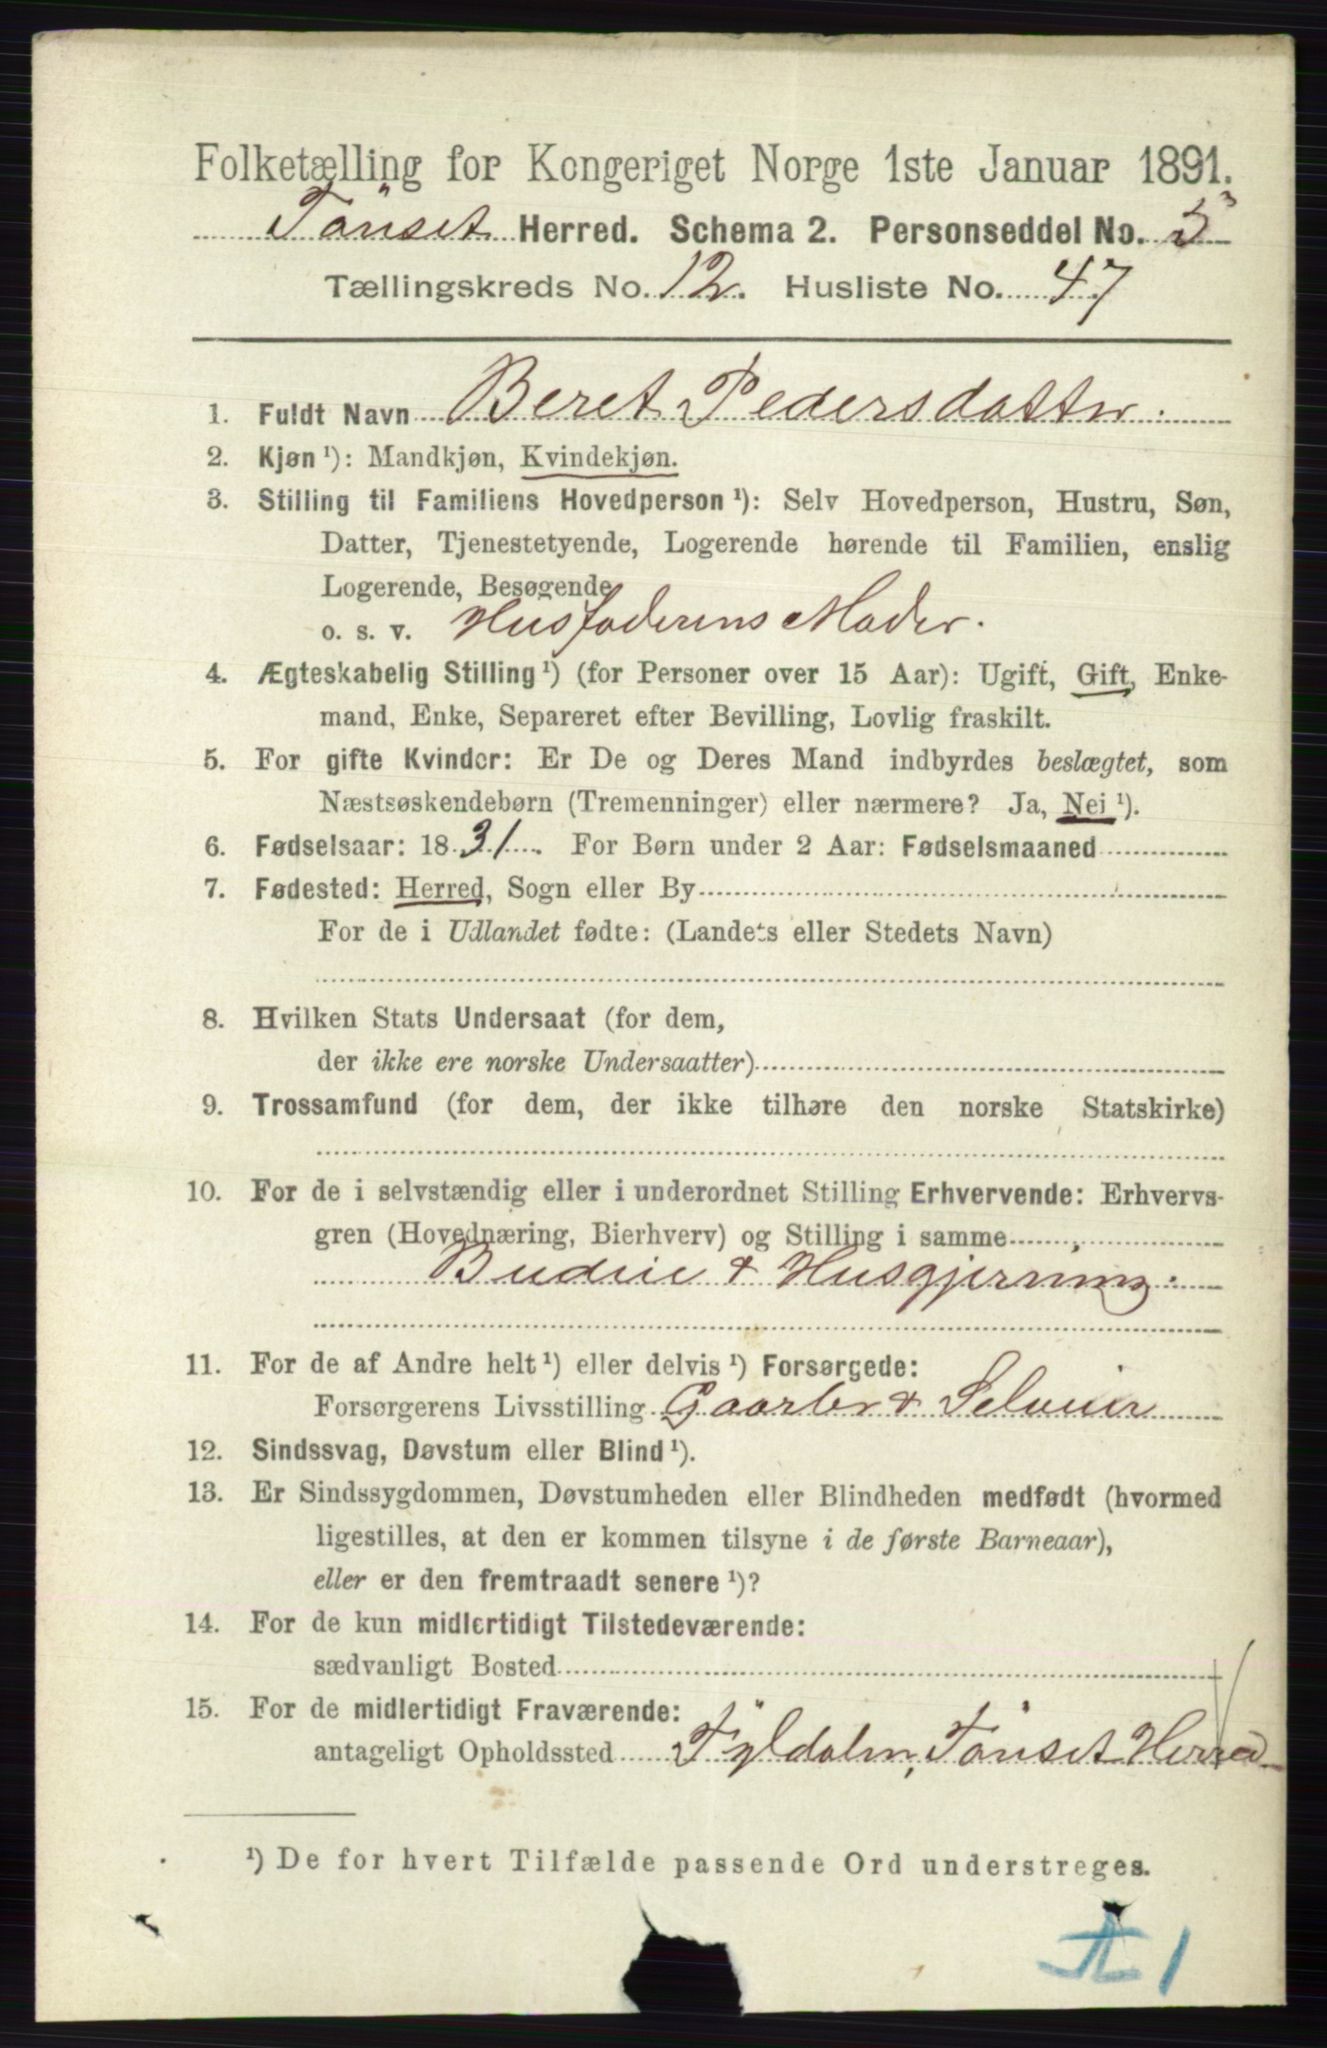 Folketælling for Kongeriget Norge 1ste Januar 1891.
Tönset Herred. Schema 2. Personseddel No. 5 3
Tællingskreds No. 12. Husliste No. 47
1. Fuldt Navn Beret Pedersdatter.
2. Kjøn ¹): Mandkjøn, Kvindekjøn.
3. Stilling til Familiens Hovedperson ¹): Selv Hovedperson, Hustru, Søn,
Datter, Tjenestetyende, Logerende hørende til Familien, enslig
Logerende, Besøgende
o. s. v. Husfaderens Moder.
4. Ægteskabelig Stilling ¹) (for Personer over 15 Aar): Ugift, Gift, Enke-
mand, Enke, Separeret efter Bevilling, Lovlig fraskilt.
5. For gifte Kvinder: Er De og Deres Mand indbyrdes beslægtet, som
Næstsøskendebørn (Tremenninger) eller nærmere? Ja, Nei ¹).
6. Fødselsaar: 1831. For Børn under 2 Aar: Fødselsmaaned
7. Fødested: Herred, Sogn eller By
For de i Udlandet fødte: (Landets eller Stedets Navn)
8. Hvilken Stats Undersaat (for dem,
der ikke ere norske Undersaatter)
9. Trossamfund (for dem, der ikke tilhøre den norske Statskirke)
10. For de i selvstændig eller i underordnet Stilling Erhvervende: Erhvervs-
gren (Hovednæring, Bierhverv) og Stilling i samme
Budeie & Husgjerning.
11. For de af Andre helt ¹) eller delvis ¹) Forsørgede:
Forsørgerens Livsstilling Gaarbr & Selveier
12. Sindssvag, Døvstum eller Blind ¹).
13. Er Sindssygdommen, Døvstumheden eller Blindheden medfødt (hvormed
ligestilles, at den er kommen tilsyne i de første Barneaar),
eller er den fremtraadt senere ¹)?
14. For de kun midlertidigt Tilstedeværende:
sædvanligt Bosted
15. For de midlertidigt Fraværende:
antageligt Opholdssted Tÿldalen, Tönset Herred
¹) De for hvert Tilfælde passende Ord understreges.